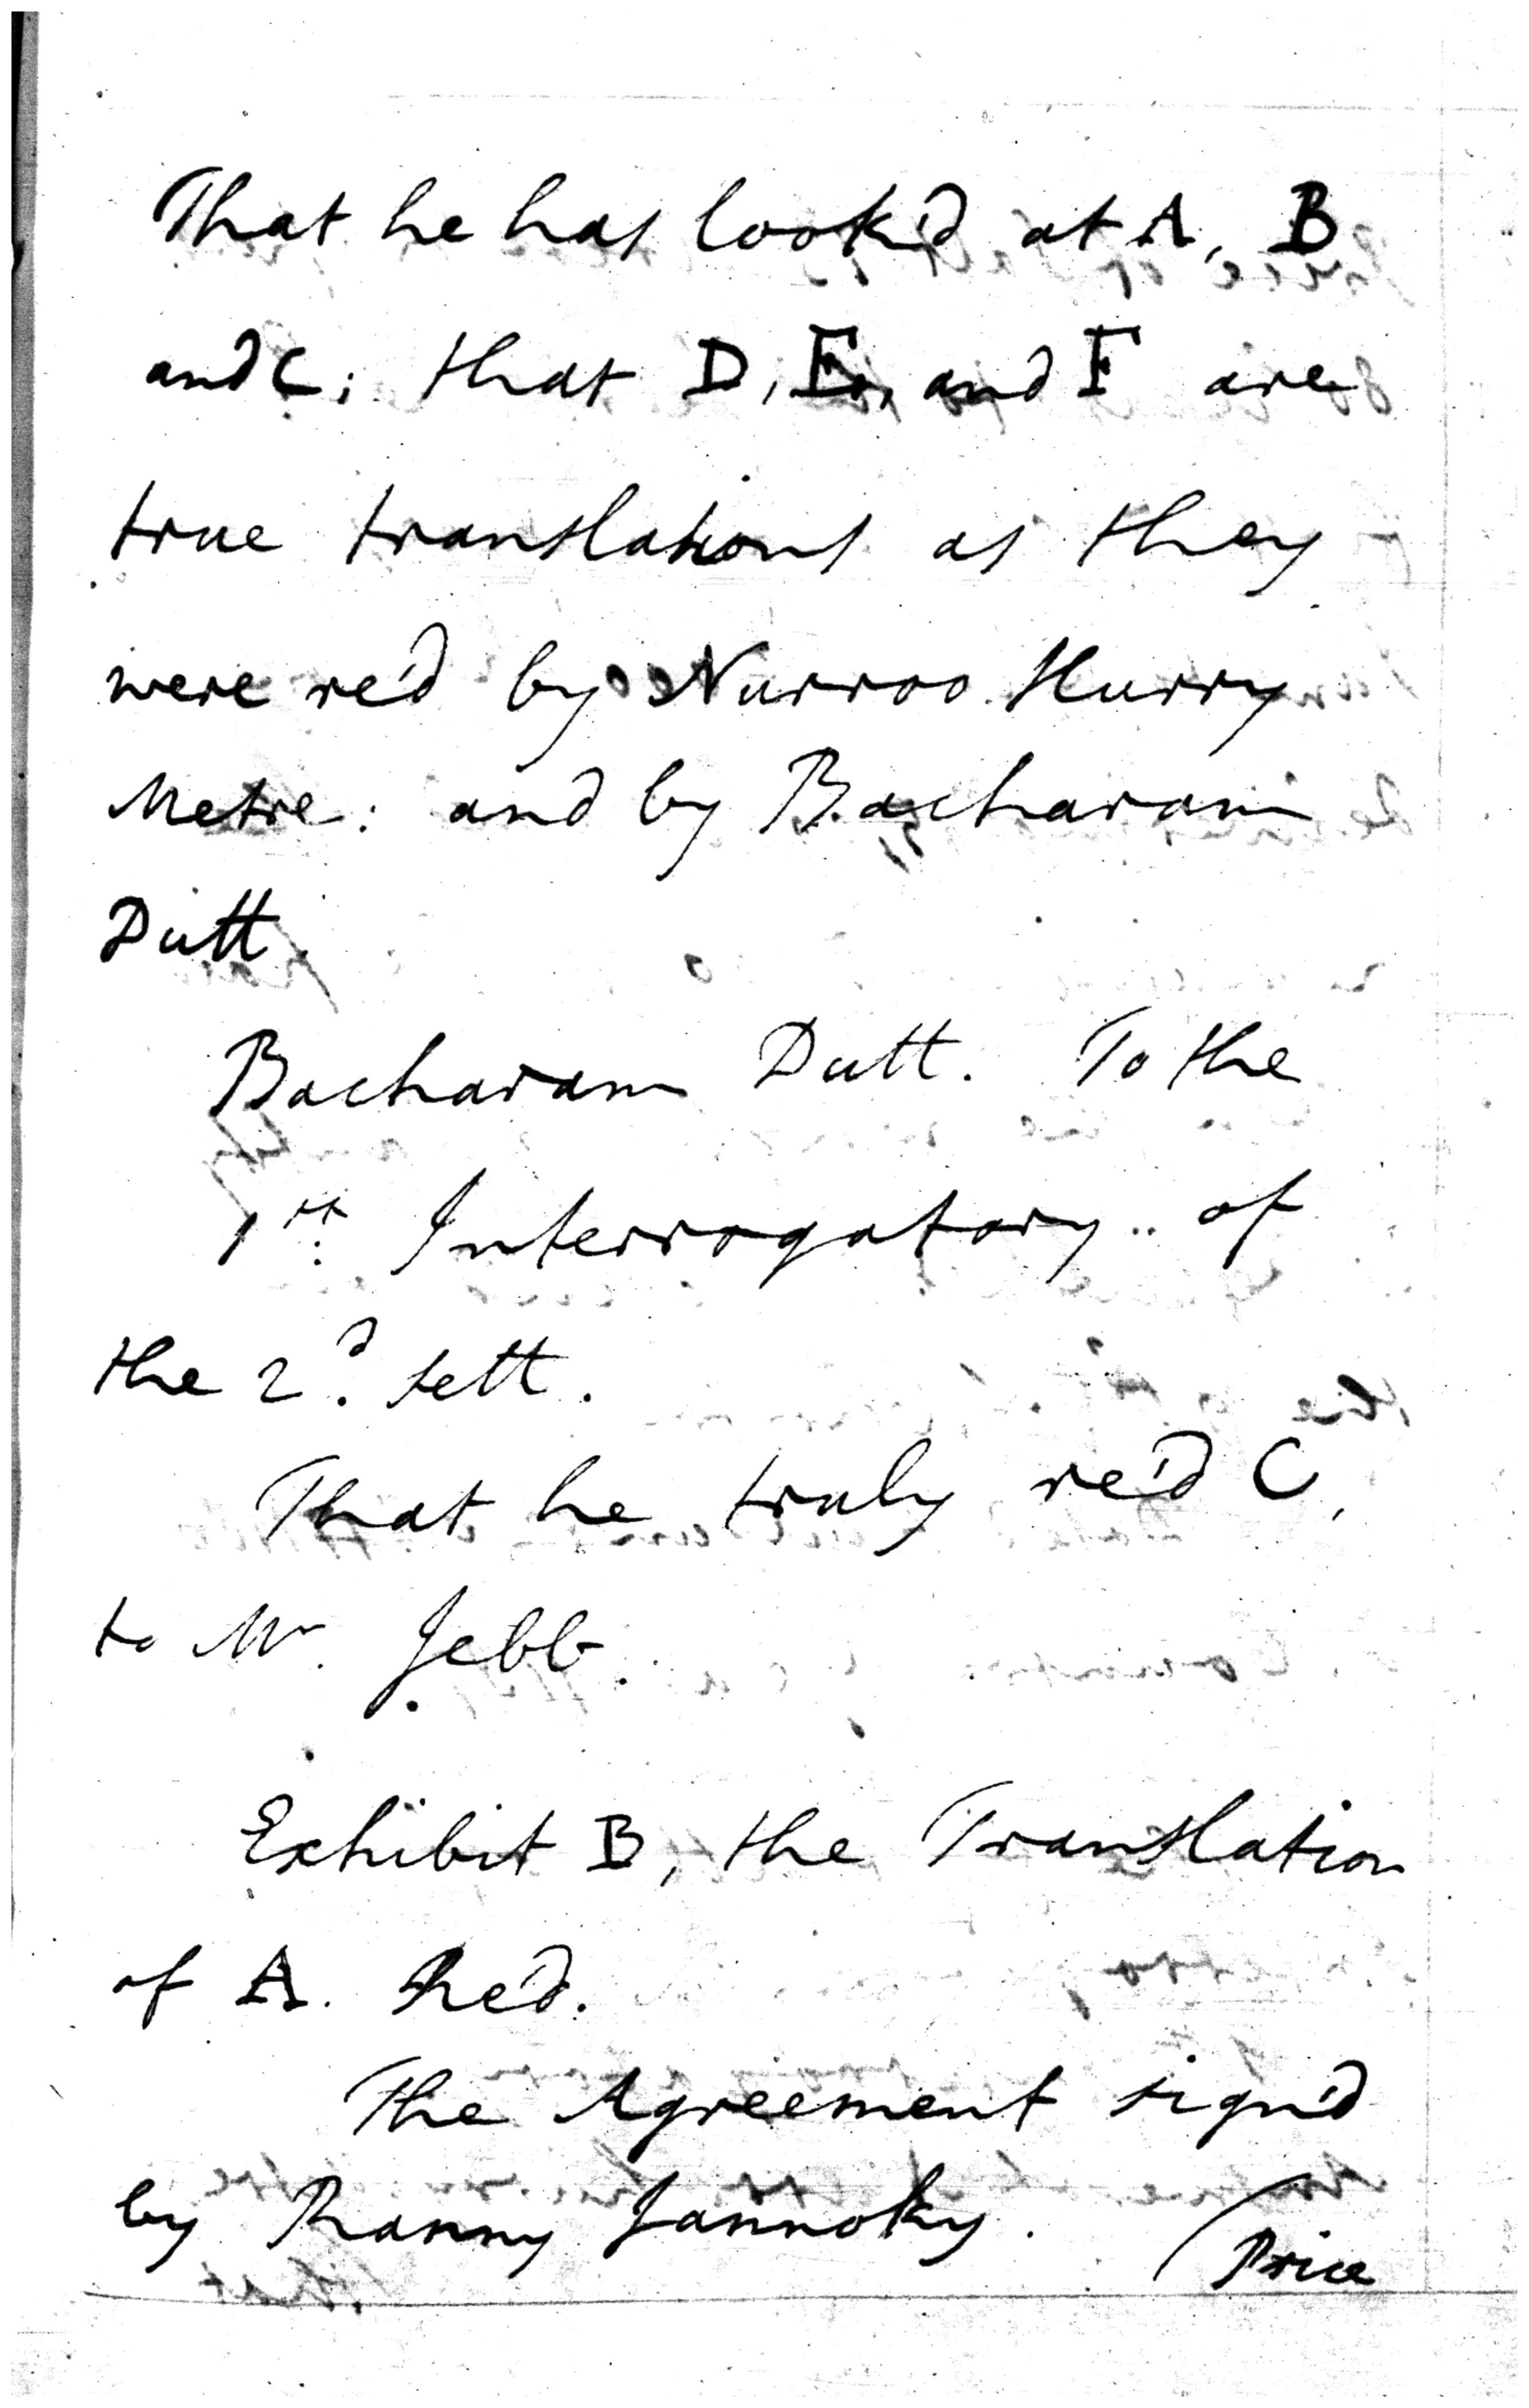 That he has look'd at A, B
and C; that D, E, and F are
true translations as they
were re'd by Nurroo Hurry
Metre: and by Bacharam
Dutt.
Bacharam Dutt. To the
1st. Interrogatory of
the 2d. sett.
That he truly re'd C,
to Mr. Jebb.
Exhibit B, the Translation
of A. Re'd.
The Agreement sign'd
by Ranny Jannoky.
Price